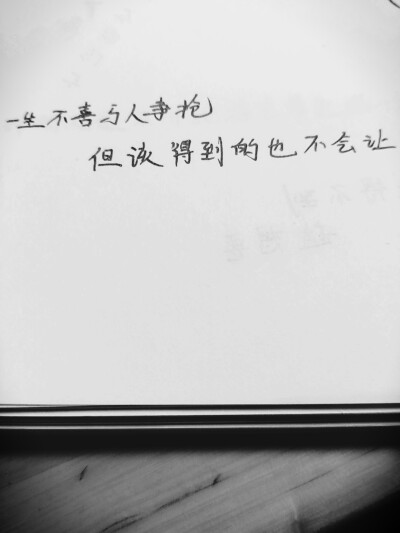 一生不喜与人争抢
但该得到的也不会让